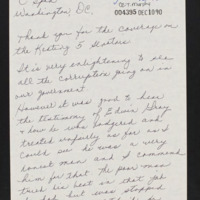 C-Span
Washington, D.C.
004395 DEC 10 90
Thank you for the coverage on
the Keating 5 Senators
It is very enlightening to see
all the corruption going on in
our government.
However it was good to hear
the testimony of Edwin Gray
& how he was badgered and
treated unfairly as far as I
could see he was a very
honest man and I commend
him for that the poor man
tried his best on that job
he had but was stopped